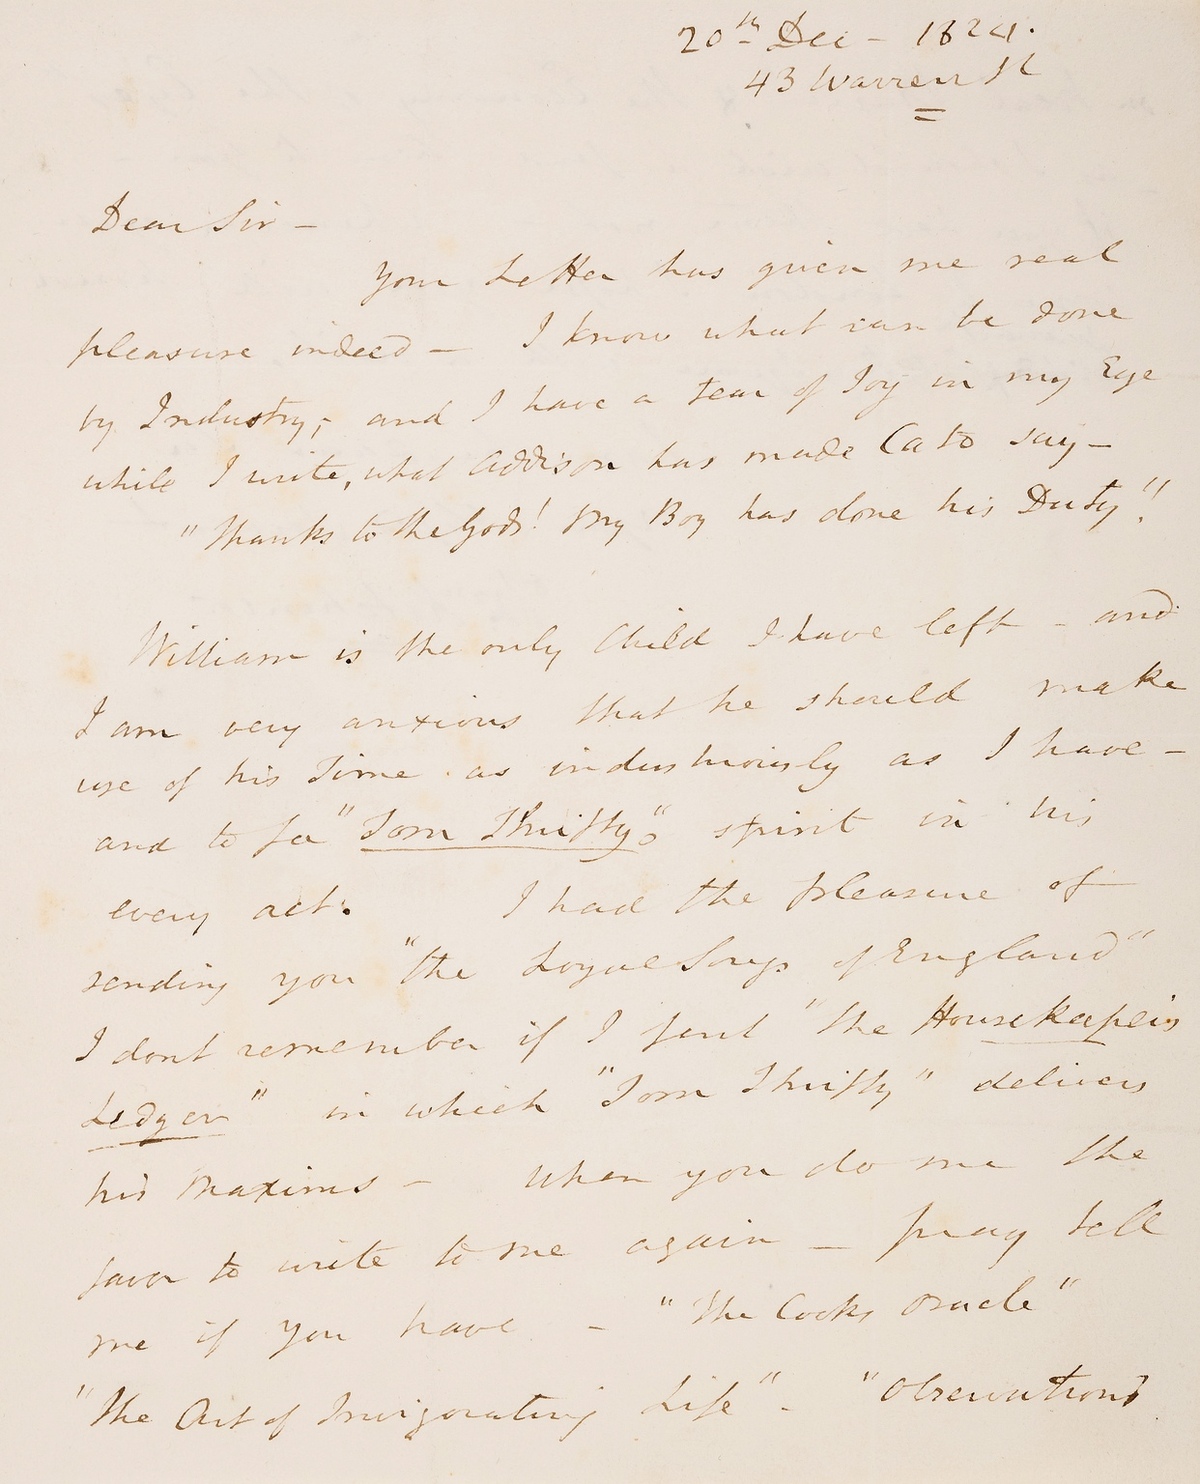 20th Dec - 1824.
43 Warren St
Dear Sir -
Your Letter has given me real
pleasure indeed - I know what can be done
by Industry, - and I have a tear of Joy in my Eye
while I write, what Addison has made Cato say -
"Thanks to the Gods! My Boy has done his Duty"!
William is the only Child I have left - and
I am very anxious that he should make
use of his Time as industriously as I have -
and to see "Tom Thrifty's" spirit in his
every act. I had the pleasure of
sending you "the Loyal Songs of England"
I dont remember if I sent "the Housekeepers
Ledger" in which "Tom Thrifty" delivers
his Maxims - when you do me the
favor to write to me again - pray tell
me if you have - "The Cooks Oracle"
"The Art of Invigorating Life" - "Observations